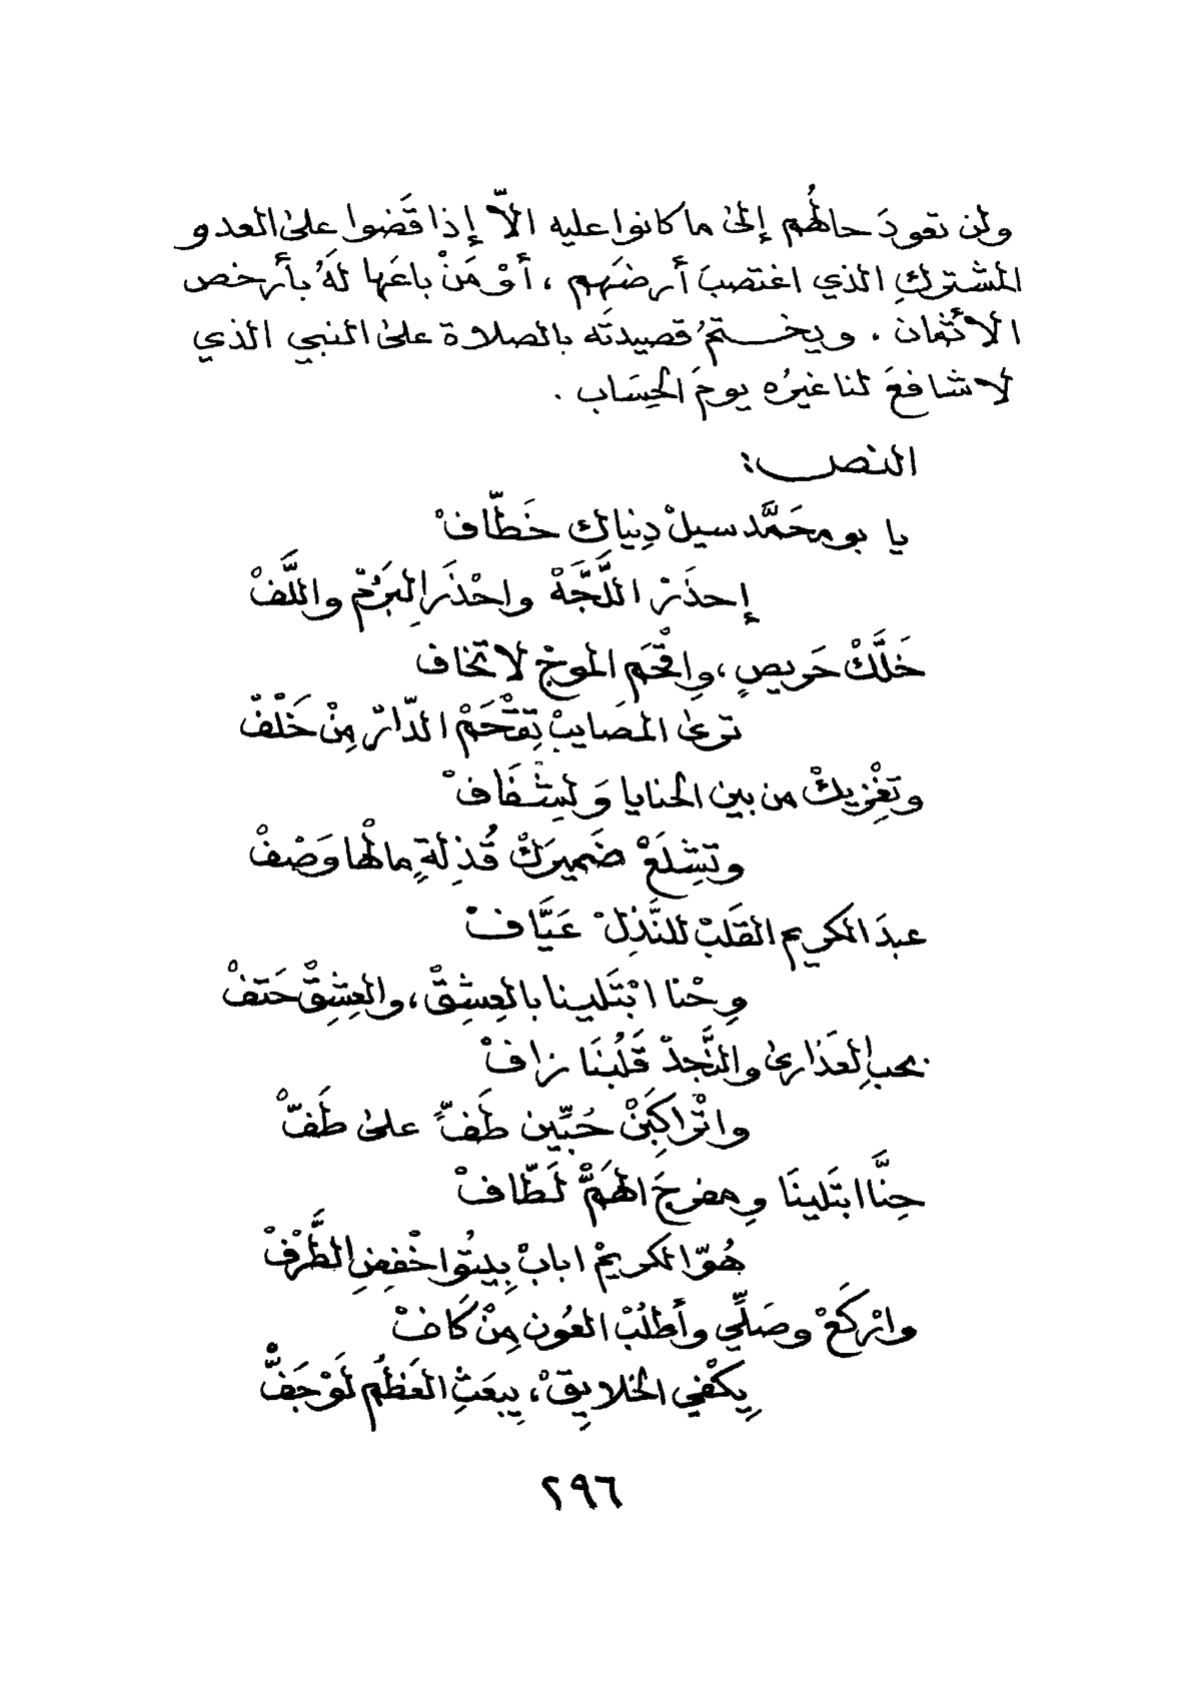 ولن تعودَ حالهُم إلى ما كانوا عليه الاّ إذا قَضوا على العدو
المشتركِ الذي اغتصبَ أرضَهم ، أوْ مَنْ باعَها لهُ بأرخص
الأثمْان . ويختمُ قصيدتَه بالصلاة على النبي الذي
لا شافعَ لنا غيرُه يومَ الحِسَاب .
النص :
يا بو محَمَّد سيلْ دِنياك خَطّافْ
إحذَرْ اللَّجَّهْ واحْذَرِ البَرْمْ واللَّفْ
خَلَّكْ حَريصٍ ، وِاقْحَم الموجْ لا تخاف
ترى المصَايبْ تِقتْحَمْ الدّارْ مِنْ خَلْفْ
وتغْزِيكْ من بين الحنايا وَلِشْفَافْ
وتشِلَعْ ضَميرَكْ قُذِلةٍ مالْها وَصْفْ
عبدَ الكريم القَلبْ للنَّذِلْ عَيَّافْ
وِحْنا ابْتَلينا بالعِشِقْ ، والعِشِقْ حَتفْ
بحبِ العَذارى والنَّجدْ قَلُبنَا زافْ
واتْراكبَنْ حُبِّين طَفٍّ على طَفّْ
حِنَّا ابتَلينَا وِمفرجَ الهَمّْ لَطّافْ
هُوّا لكريمْ ابابْ بِيتُوا خْفِضِ الطَّرْفْ
وارْكَعْ وصَلِّي وأطلُبْ العُون مِنْ كَافْ
يِكْفي الخلايِقْ ، يِبعَثِ العَظمُ لَوْ جَفّْ
٢٩٦